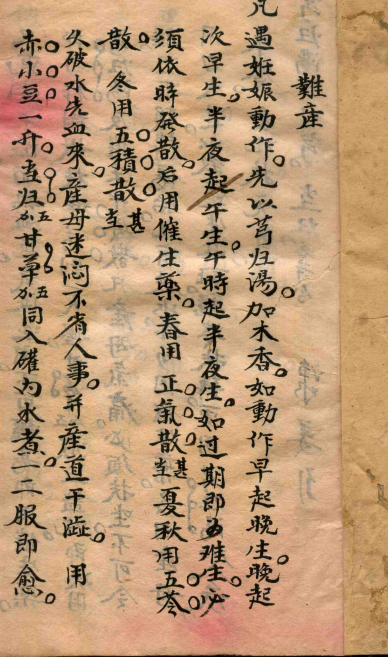 難産
凡遇姙娠動作。先以芎归湯。加木香。如動作早起晚生。晚起
次早生。半夜起午生。午時起半夜生。如过期即为难生。必
須依時發散。后用催生藥。春用正氣散甚当。夏秋用五苓
散。冬用五積散甚当
久破水先血來。産母迷闷不省人事。并産道干澁。用
赤小豆一升。当归五分甘草五分同入確内水煮。一二服即愈。